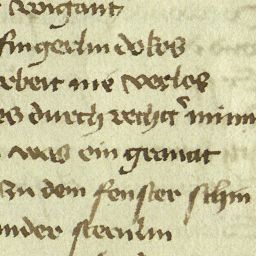 wigant
fingerlin do kos
rbeit nie verlos
es durch rechtˀ minn
was ein granat
zu dem fenster schin
ander sternlin